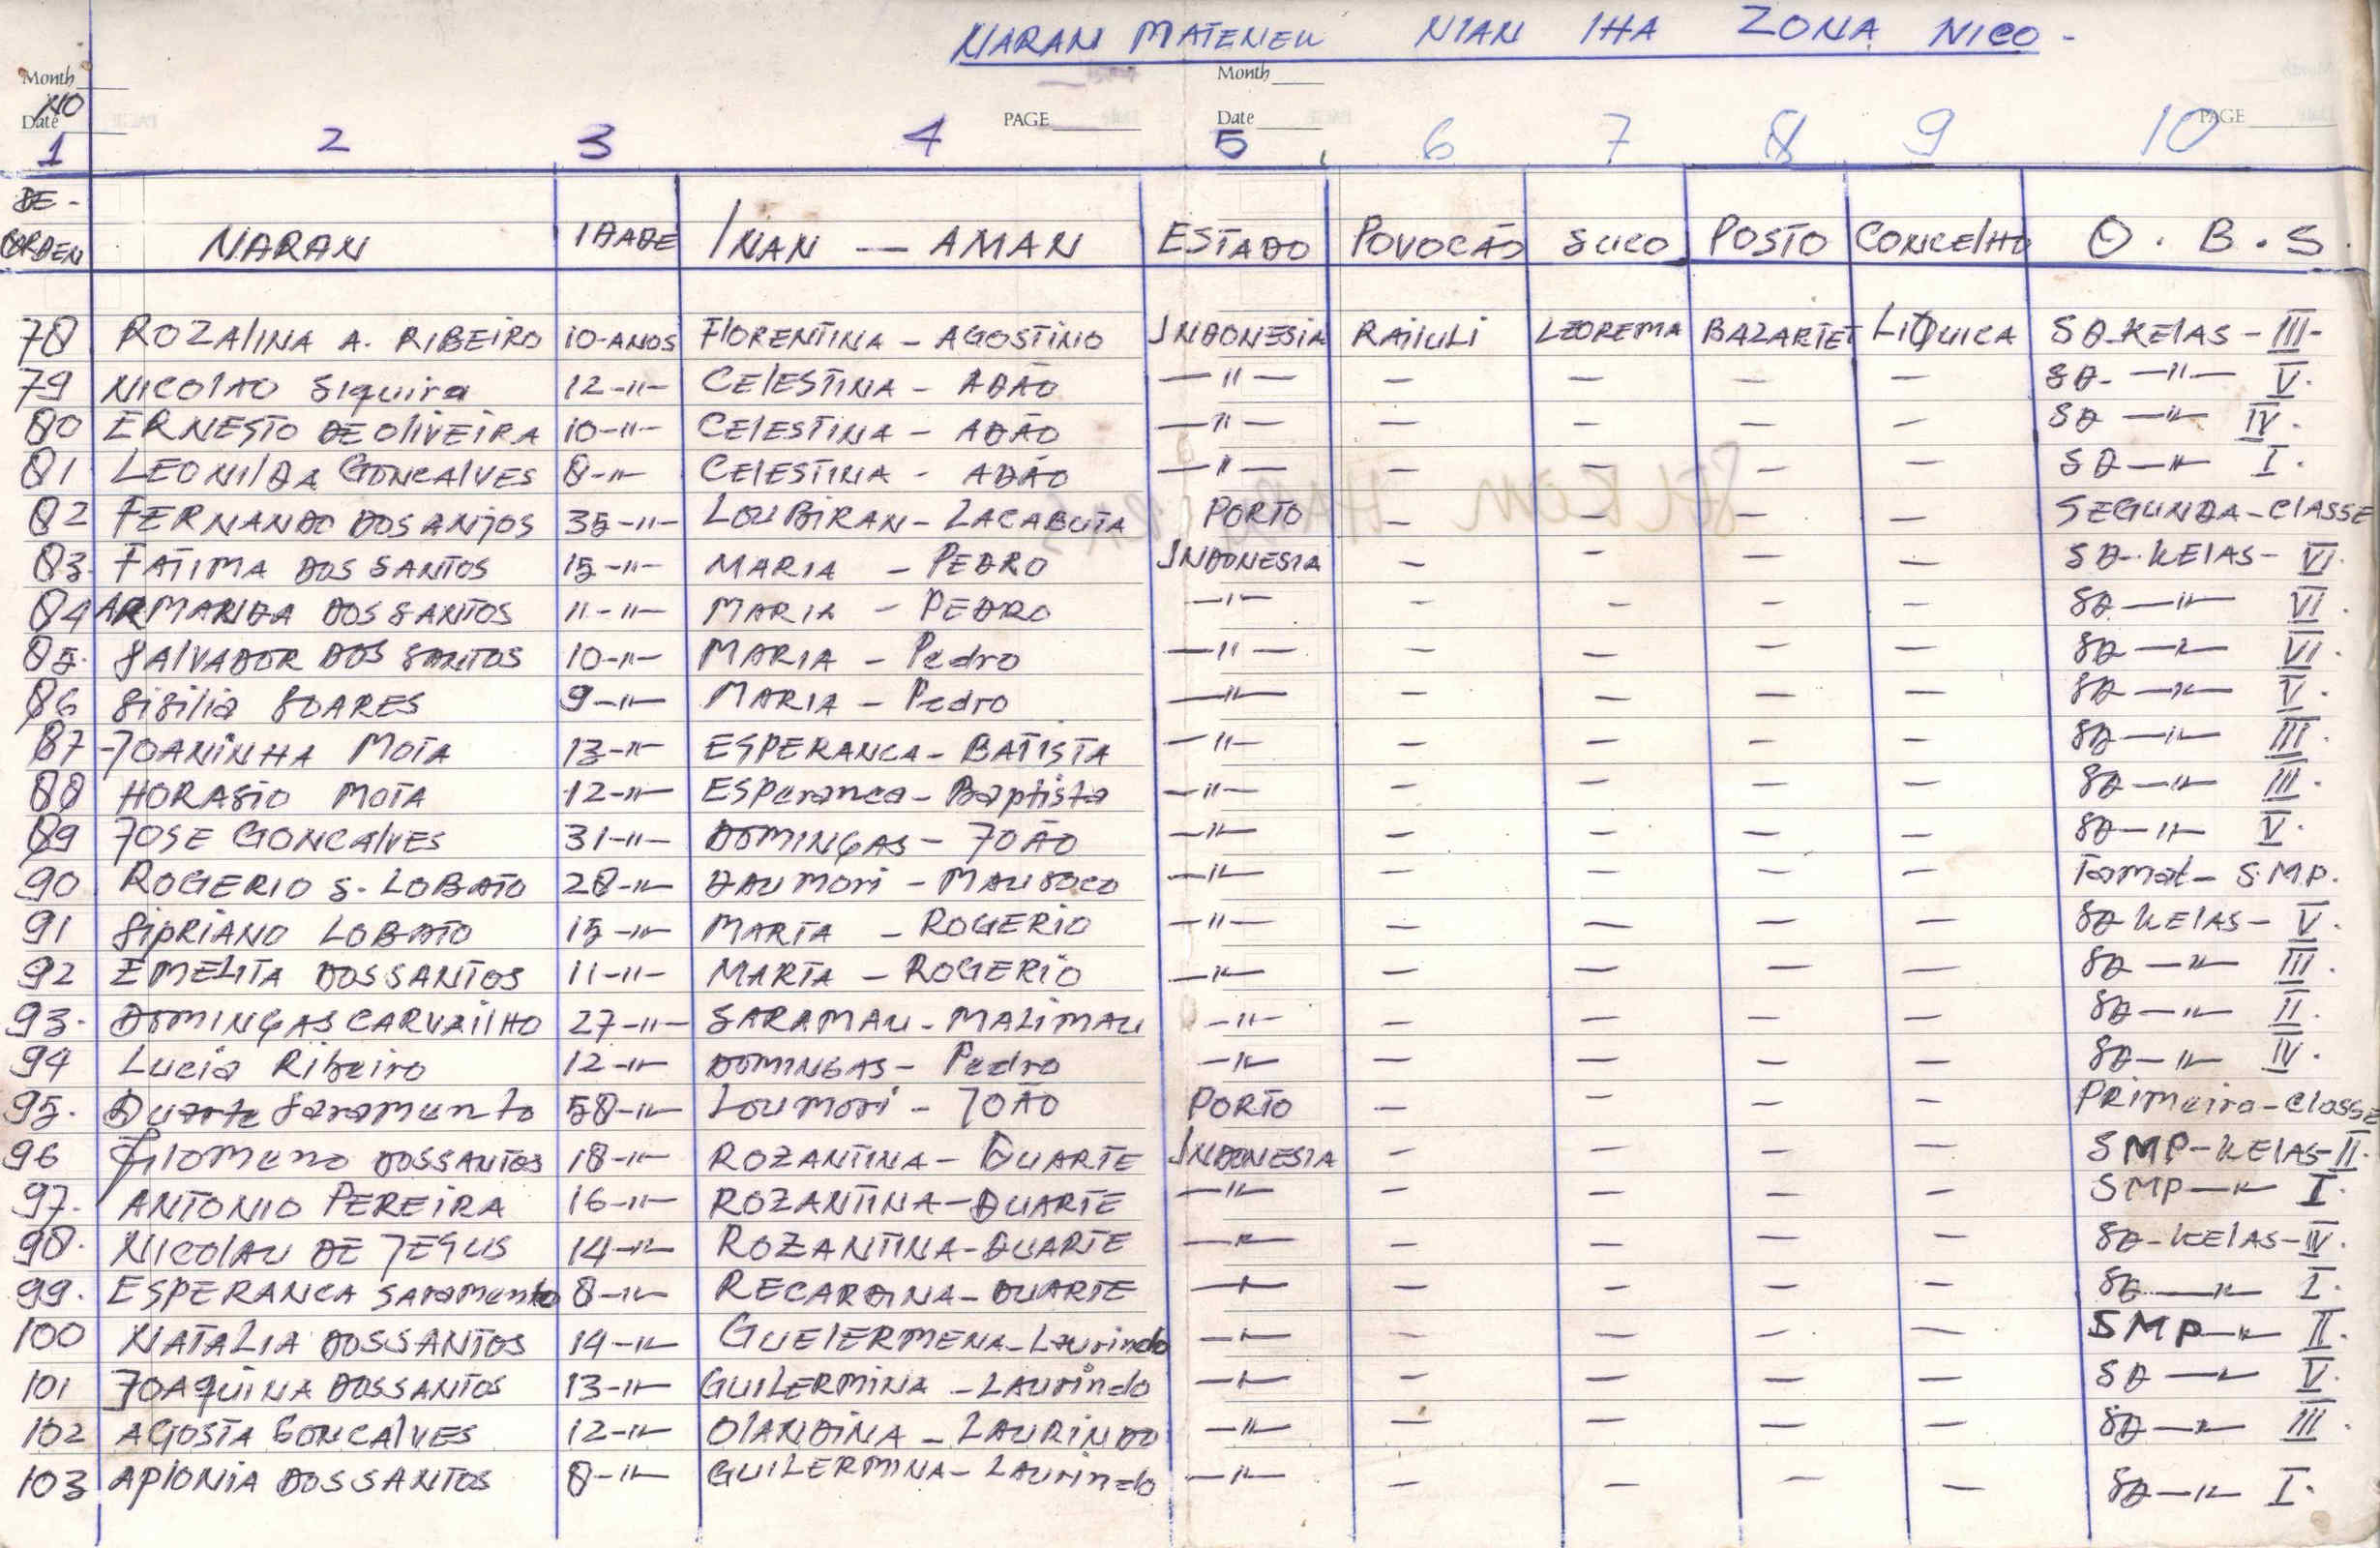 NARAN MATENEK NIAN IHA ZONA NICO -
Month
Month
NO
Date PAGE Date PAGE
1 2 3 4 5 6 7 8 9 10
DE - ORDEN NARAN IDADE INAN — AMAN ESTADO POVOCÃO SUCO POSTO CONCELHO O. B. S.
78 ROZALINA A. RIBEIRO 10-ANOS FLORENTINA - AGOSTINO INDONESIA RAIIULI LEOREMA BAZARTET LIQUICA SD-KELAS - III-
79 NICOLAO SIquira 12-"- CELESTINA - ADÃO —"— — — — — SD- —"— V.
80 ERNESTO DE OLIVEIRA 10-"- CELESTINA - ADÃO —"— — — — — SD —"— IV.
81 LEONILDA GONCALVES 8-"- CELESTINA - ADÃO —"— — — — — SD —"— I.
82 FERNANDO DOS ANJOS 35-"- LOUBIRAN - LACABUTA PORTO — — — — SEGUNDA-CLASSE
83. FATIMA DOS SANTOS 15-"- MARIA - PEDRO INDONESIA — — — — SD-KELAS- VI.
84 ARMANDA DOS SANTOS 11-"- MARIA - PEDRO —"— — — — — SD —"— VI.
85. SALVADOR DOS SANTOS 10-"- MARIA - Pedro —"— — — — — SD —"— VI.
86 SiSilia SOARES 9-"- MARIA - Pedro —"— — — — — SD —"— V.
87 JOANINHA MOTA 13-"- ESPERANCA - BATISTA —"— — — — — SD —"— III.
88 HORASIO MOTA 12-"- ESPeranca - Baptista —"— — — — — SD —"— III.
89 JOSE GONCALVES 31-"- DOMINGAS - JOÃO —"— — — — — SD —"— V.
90 ROGERIO S. LOBATO 28-"- DAUMORI - MAUSOCO —"— — — — — Tamat - S.M.P.
91 SIPRIANO LOBATO 15-"- MARTA - ROGERIO —"— — — — — SD KELAS - V.
92 EMELITA DOS SANTOS 11-"- MARTA - ROGERIO —"— — — — — SD —"— III.
93. DOMINGAS CARVAILHO 27-"- SARAMAU - MALIMAU —"— — — — — SD —"— II.
94 Lucia Ribeiro 12-"- DOMINGAS - Pedro —"— — — — — SD —"— IV.
95. Duarte Saramento 58-"- LOUMORI - JOÃO PORTO — — — — PRIMeira-Classe
96 FiloMeno DOS SANTOS 18-"- ROZANTINA - DUARTE INDONESIA — — — — SMP-KELAS-II.
97. ANTONIO PEREIRA 16-"- ROZANTINA - DUARTE —"— — — — — SMP —"— I.
98. NICOLAU DE JESUS 14-"- ROZANTINA - DUARTE —"— — — — — SD-KELAS-IV.
99. ESPERANCA Saramento 8-"- RECARDINA - DUARTE —"— — — — — SD —"— I.
100 NATALIA DOS SANTOS 14-"- GUELERMENA - Laurindo —"— — — — — SMP —"— II.
101 JOAQUINA DOS SANTOS 13-"- GUILERMINA - LAUrindo —"— — — — — SD —"— V.
102 AGOSTA GONCALVES 12-"- OLANDINA - LAURINDO —"— — — — — SD —"— III.
103 APLONIA DOS SANTOS 8-"- GUILERMINA - LAUrindo —"— — — — — SD —"— I.